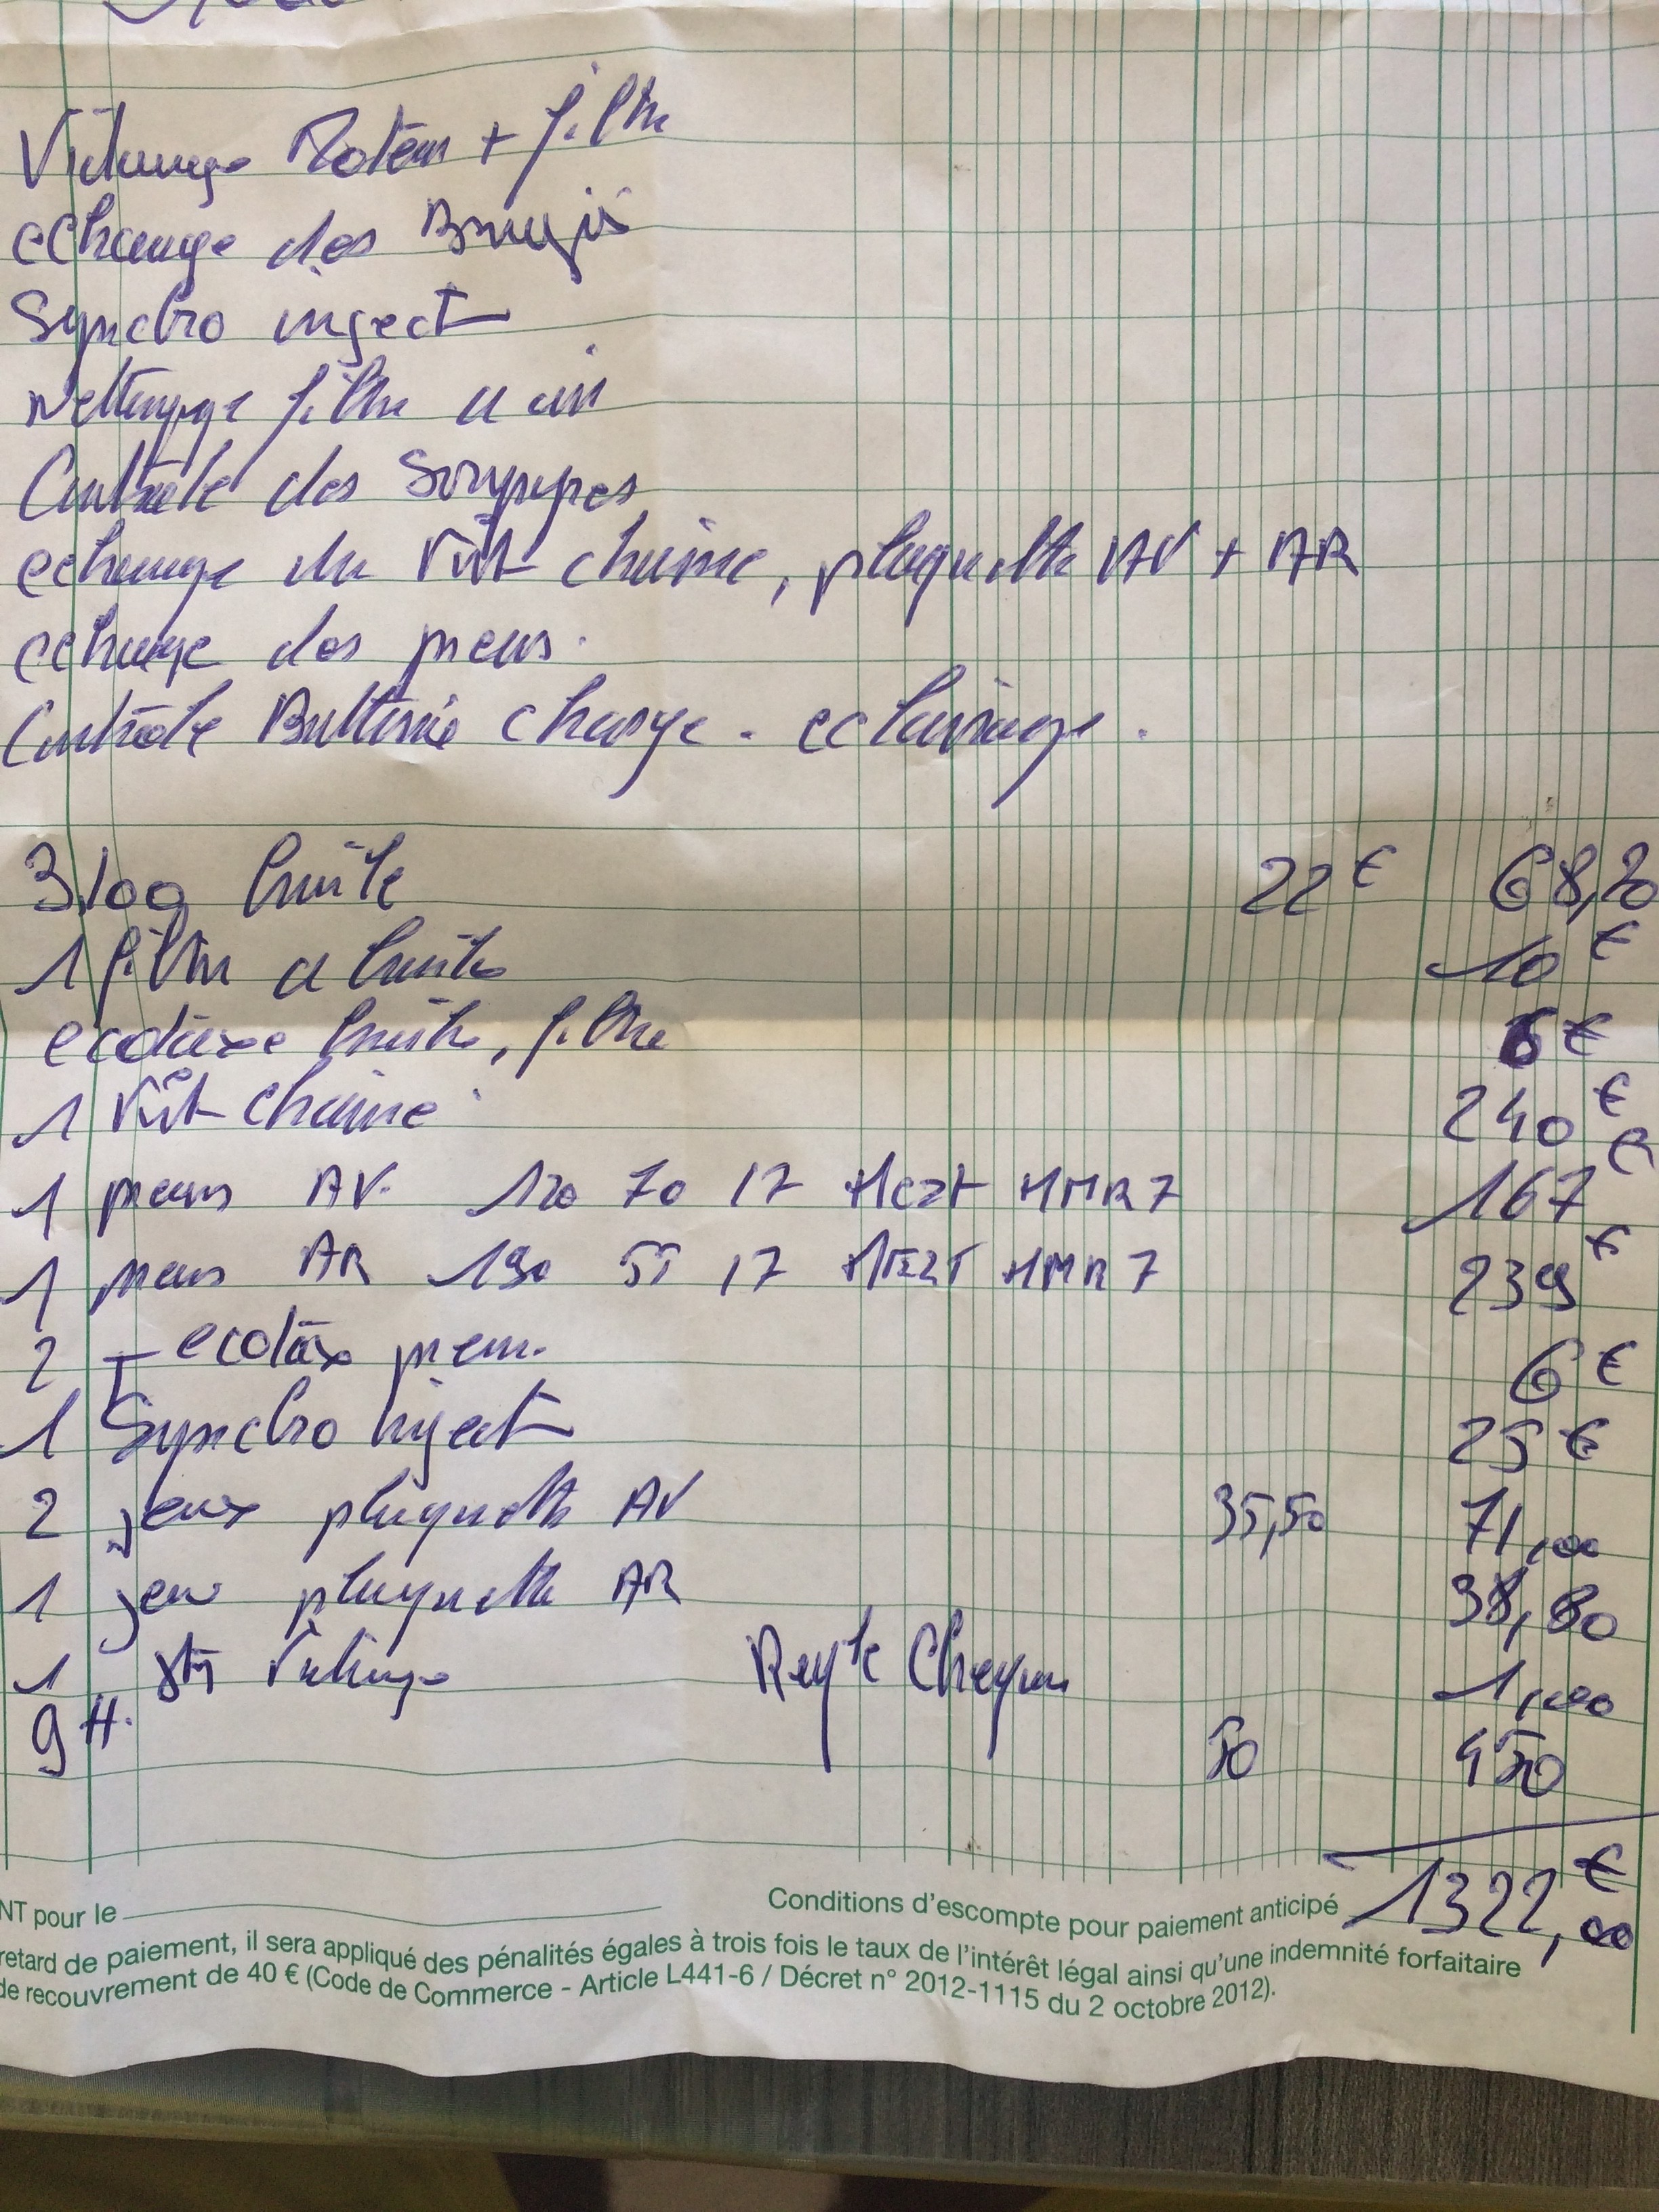 Vidange Moteur + filtre
echange des Bougies
Synchro inject
Nettoyage filtre a air
Controle des Soupapes
echange du Kit chaine, plaquette AV + AR
echange des pneus.
Controle Batterie charge - eclairage.
3l100 huile 22€ 68,20
1 filtre a huile 10€
ecotaxe huile, filtre 6€
1 Kit chaine 240€
1 pneus AV. 120 70 17 METZ MMR7 167€
1 pneus AR 190 55 17 METZ MMR7 239€
2 ecotaxe pneu. 6€
1 Synchro inject 25€
2 jeux plaquette AV 35,50 71,00
1 jeux plaquette AR 38,80
1 jt Vidange Reglé Cheque 1,00
9 H. 50 450
1322,00€
NT pour le
Conditions d'escompte pour paiement anticipé
retard de paiement, il sera appliqué des pénalités égales à trois fois le taux de l'intérêt légal ainsi qu'une indemnité forfaitaire
de recouvrement de 40 € (Code de Commerce - Article L441-6 / Décret n° 2012-1115 du 2 octobre 2012).